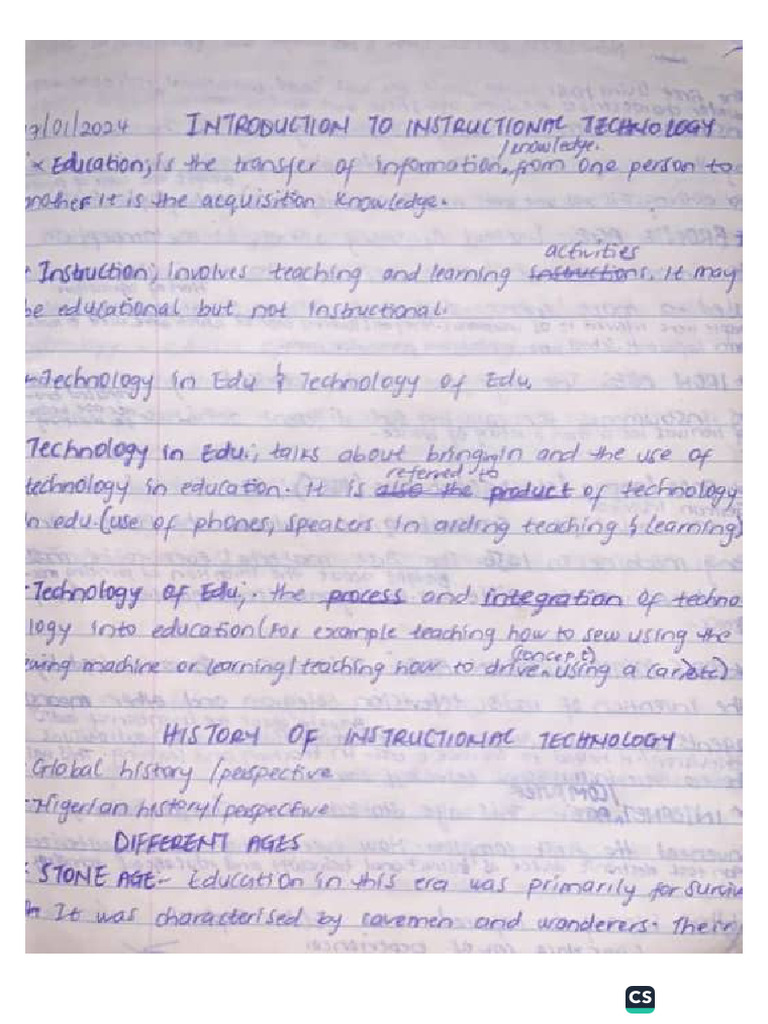 7/01/2024 INTRODUCTION TO INSTRUCTIONAL TECHNOLOGY
/knowledge.
* Education; is the transfer of information from one person to
another It is the acquisition knowledge.
activities
Instruction; Involves teaching and learning instructions. It may
be educational but not instructional.
Technology in Edu & Technology of Edu.
Technology in Edu.; talks about bringing in and the use of
referred to
technology in education. It is also the product of technology
in edu. (use of phones, speakers in aiding teaching & learning)
- Technology of Edu;. the process and integration of techno
logy into education (For example teaching how to sew using the
(concept)
wing machine or learning/teaching how to drive using a car, etc)
HISTORY OF INSTRUCTIONAL TECHNOLOGY
- Global history /perspective
- Nigerian history/perspective
DIFFERENT AGES
STONE AGE:- Education in this era was primarily for surviv
It was characterised by cavemen and wanderers. Their
CS